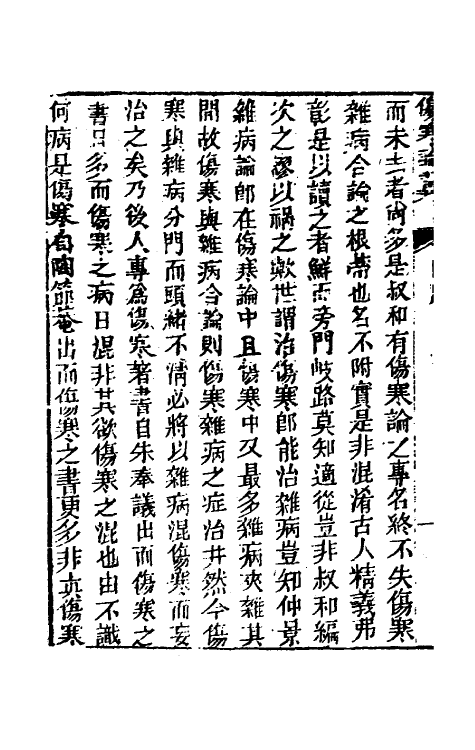 傷寒論
而未去者尚多是叔和有傷寒論之專名終不失傷寒
雜病合論之根蒂也名不附實是非混淆古人精義弗
彰是以讀之者鮮而旁門岐路莫知適從豈非叔和編
次之謬以禍之歟世謂治傷寒卽能治雜病豈知仲景
雜病論卽在傷寒論中且傷寒中又最多雜病夾雜其
間故傷寒與雜病合論則傷寒雜病之症治井然今傷
寒與雜病分門而頭緒不清必將以雜病混傷寒而妄
治之矣乃後人專爲傷寒著書自朱奉議出而傷寒之
書日多而傷寒之病日混非其欲傷寒之混也由不識
何病是傷寒也自陶節菴出而傷寒之書更多非眞傷寒